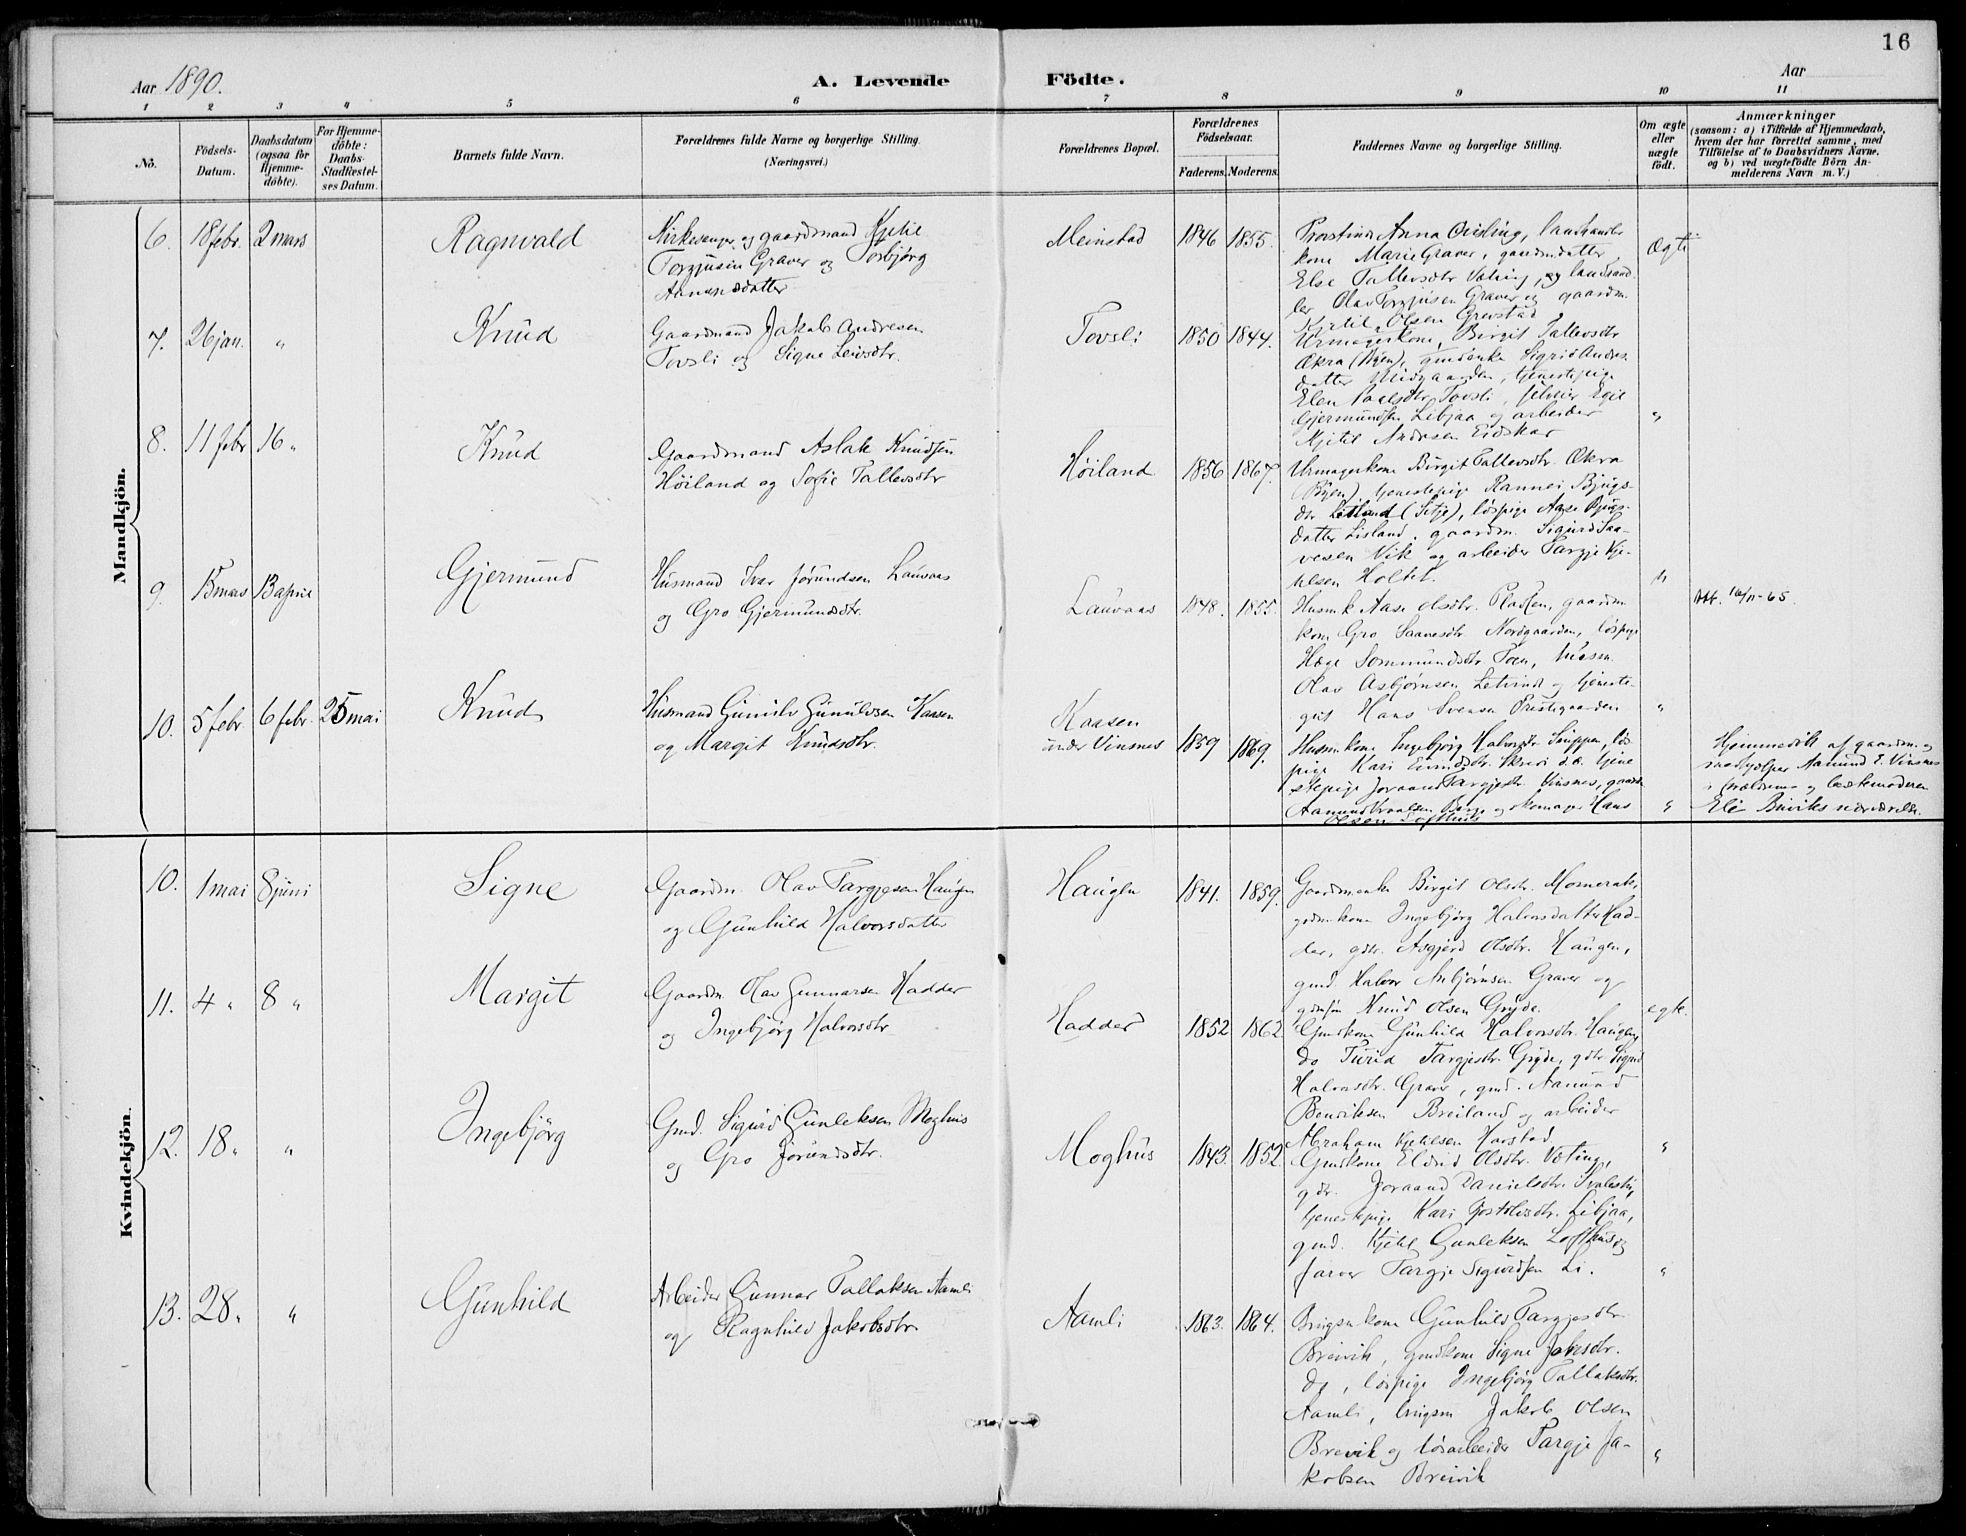 16
Aar 1890.
A. Levende Födte.
Aar
1 2 3 4 5 6 7 8 9 10 11
No.
Födsels-Datum.
Daabsdatum (ogsaa for Hjemmedöbte).
For Hjemmedöbte: Daabs-Stadfæstelses Datum.
Barnets fulde Navn.
Forældrenes fulde Navne og borgerlige Stilling.
(Næringsvei.)
Forældrenes Bopæl.
Forældrenes Födselsaar.
Faderens. Moderens.
Faddernes Navne og borgerlige Stilling.
Om ægte eller uægte födt.
Anmærkninger
(saasom: a) i Tilfælde af Hjemmedaab, hvem der har forrettet samme, med Tilföielse af to Daabsvidners Navne, og b) ved uægtefödte Börn Anmelderens Navn m. V.)
Mandkjön.
6. 18 febr. 2 mars
Ragnvald
Kirkesanger og gaardmand Kjetil
Torgjusen Graver og Torbjørg
Aanunsdatter
Meinstad
1846 1855.
Provstinde Anna Qvisling, landhandler
kone Marie Graver, gaardmdatter
Else Tallevsdtr Veting, og landhand
ler Olav Torgjusen Graver og gaardm.
Kjetil Olsen Grovstad
Ægte
7. 26 jan. "
Knud
Gaardmand Jakob Andresen
Tovsli og Signe Leivsdtr.
Tovsli
1850 1844.
Urmagerkone Birgit Tallevsdtr
Økra (Byen), gmdenke Sigrid Andres
datter Midgaarden, tjenestepige
Elen Paalsdtr Tovsli, selveier Egil
Gjermundsen Libjaa og arbeider
Kjetil Andresen Eidskar
"
8. 11 febr 16 "
Knud
Gaardmand Aslak Knudsen
Høiland og Sofie Tallevsdtr
Høiland
1856 1867.
Urmagerkone Birgit Tallevsdtr. Økra
(Byen), tjenestepige Rannei Bjugs-
dtr Lisland (Sitje), løspige Aase Bjugs-
datter Lisland, gaardm. Sigurd Saa-
vesen Vik og arbeider Targje Kje-
tilsen Holtet.
"
9. 15 mars 13 april
Gjermund
Husmand Ivar Jørundsen Lauvaas
og Gro Gjermundsdtr.
Lauvaas
1848. 1855.
Husmk Aase Olsdtr. Pladsen, gaardm
kone Gro Saavesdtr. Nordgaarden, løspige
Hæge Sommundsdtr. Toen, husm.
Olav Asbjørnsen Letvindt og tjeneste-
gut Hans Svensen Prestegaarden
"
Att. 16/11-65.
10. 5 febr. 6 febr. 25 mai
Knud
Husmand Gunulv Gunulvsen Kaasen
og Margit Knudsdtr.
Kaasen
under Vinsnes
1859 1869.
Husmkone Ingebjørg Halvorsdtr. Snippen, løs
pige Kari Eivindsdtr. Skrei d.æ. tjene
stepige Joraand Targjesdtr Vinsnes, gaardm
Aamund og skomager Hans
Olsen Lofthus
"
Hjemmedøbt af gaardm. og
medhjælper Aamund E. Vinsnes
i forældrenes og bestemoderen
Eli Breiviks nærværelse.
Kvindekjön.
10. 1 mai 8 juni
Signe
Gaardm. Olav Targjesen Haugen
og Gunhild Halvorsdatter
Haugen
1841. 1859.
Gaardmenke Birgit Olsdtr. Momerak,
gdmkone Ingebjørg Halvorsdatter Had-
der, gdtr. Asgjerd Olsdtr. Haugen,
gmd. Halvor Asbjørnsen Graver og
gdmsøn Knud Olsen Gryde.
egte.
11. 4 " 8 "
Margit
Gaardm. Olav Gunnarsen Hadder
og Ingebjørg Halvorsdtr
Hadder
1852 1862.
Gmdkone Gunhild Halvorsdtr. Haugen,
do Turid Targjesdtr. Gryde, gdtr Sigrid
Halvorsdtr. Graver, gmd. Aamund
Bendiksen Breiland og arbeider
Abraham Kjetilsen Harstad
"
12. 18 " "
Ingebjørg
Gmd. Sigurd Gunleksen Moghus
og Gro Jørundsdtr.
Moghus
1843. 1852
Gmdkone Eldrid Olsdtr. Veting,
gdr. Joraand Danielsdtr.
tjenestepige Kari Gostølsdtr. Libjaa,
gmd. Kjetil Gunleksen Lofthus og
farver Targje Sigurdsen Li.
"
13. 28 " "
Gunhild
Arbeider Gunnar Tallaksen Aamli
og Ragnhild Jakobsdtr.
Aamli
1863. 1864.
Brugsmkone Gunhild Targjesdtr.
Breivik, gmdkone Signe Jakobsdtr.
do, løspige Ingebjørg Tallaksdtr.
Aamli, brugsm Jakob Olsen
Breivik og løsarbeider Targje Ja-
kobsen Breivik
"